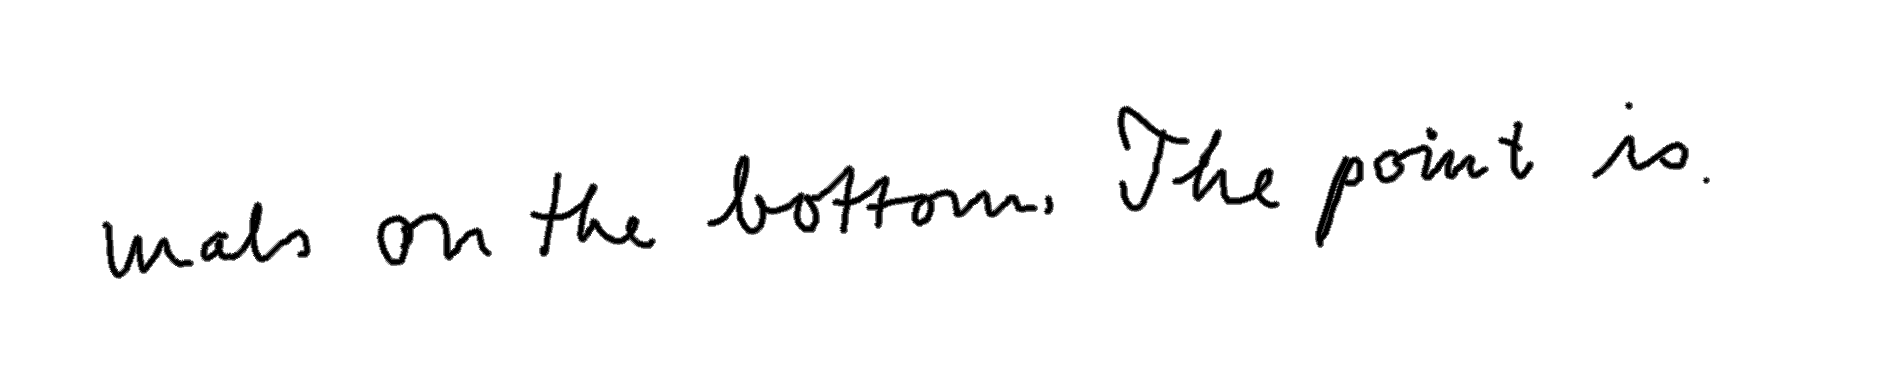 mals on the bottom. The point is.